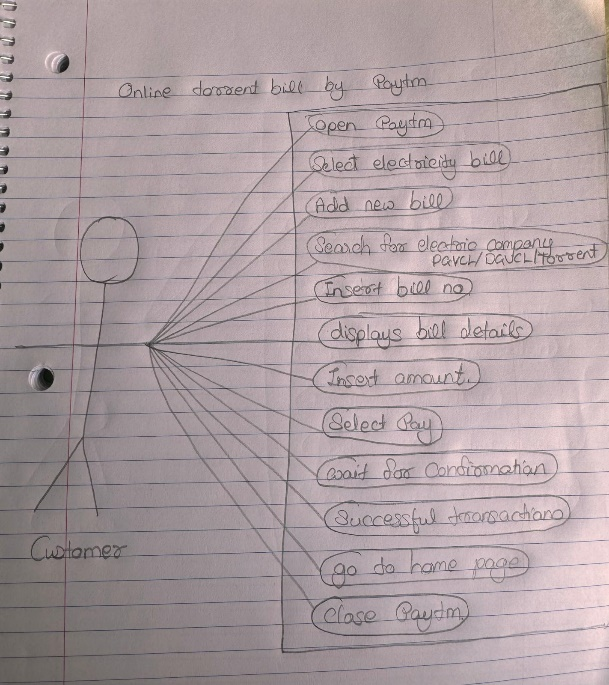 Online torrent bill by Paytm
Open Paytm
Select electricity bill
Add new bill
Search for electric company
PGVCL/DGVCL/torrent
Insert bill no
displays bill details
Insert amount.
Select Pay
wait for Confirmation
Successful transaction
go to home page
Close Paytm
Customer